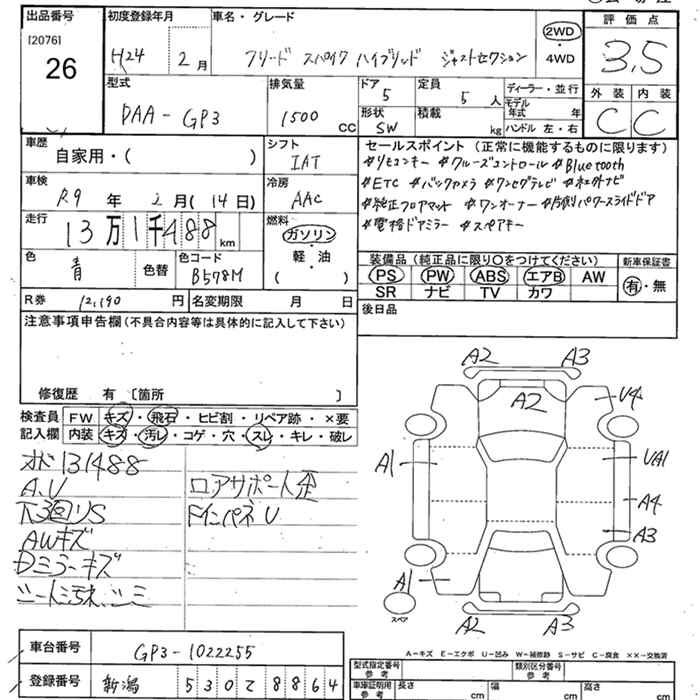 出品番号
[20761]
26
初度登録年月
H24 2月
車名・グレード
フリード スパイク ハイブリッド ジャストセレクション
2WD
4WD
評価点
3.5
外装 内装
C C
型式
DAA-GP3
排気量
1500 cc
ドア
5
形状
SW
定員
5 人
積載
kg
ディーラー・並行
モデル年式 年
ハンドル 左・右
車歴
自家用・( )
シフト
IAT
車検
R9年 2月(14日)
冷房
AAC
走行
13万1千488 km
燃料
ガソリン
軽・油
( )
色
青
色替
色コード
B578M
R券 12,190 円
名変期限 月 日
セールスポイント(正常に機能するものに限ります)
#リモコンキー #クルーズコントロール #Bluetooth
#ETC #バックカメラ #ワンセグテレビ #社外ナビ
#純正フロアマット #ワンオーナー #片側パワースライドドア
#電格ドアミラー #スペアキー
装備品(純正品に限り○をつけてください)
新車保証書
PS PW ABS エアB AW
SR ナビ TV カワ
有・無
後日品
注意事項申告欄(不具合内容等は具体的に記入して下さい)
修復歴 有 〔箇所 〕
検査員記入欄
FW キズ・飛石・ヒビ割・リペア跡・×要
内装 キズ・汚レ・コゲ・穴・スレ・キレ・破レ
オド131488
A.U
下回リS
AWキズ
Dミラーキズ
シート汚れ、シミ
ロアサポート歪
FインパネU
A2 A3
A2
U4
A1
UA1
A4
A3
A1
A2 A3
スペア
A-キズ E-エクボ U-凹み W-補修跡 S-サビ C-腐食 ××-交換済
車台番号 GP3-1022255
登録番号 新潟 530 に 8864
型式指定番号 参考
類別区分番号 参考
車庫証明用 参考
長さ cm
幅 cm
高さ cm